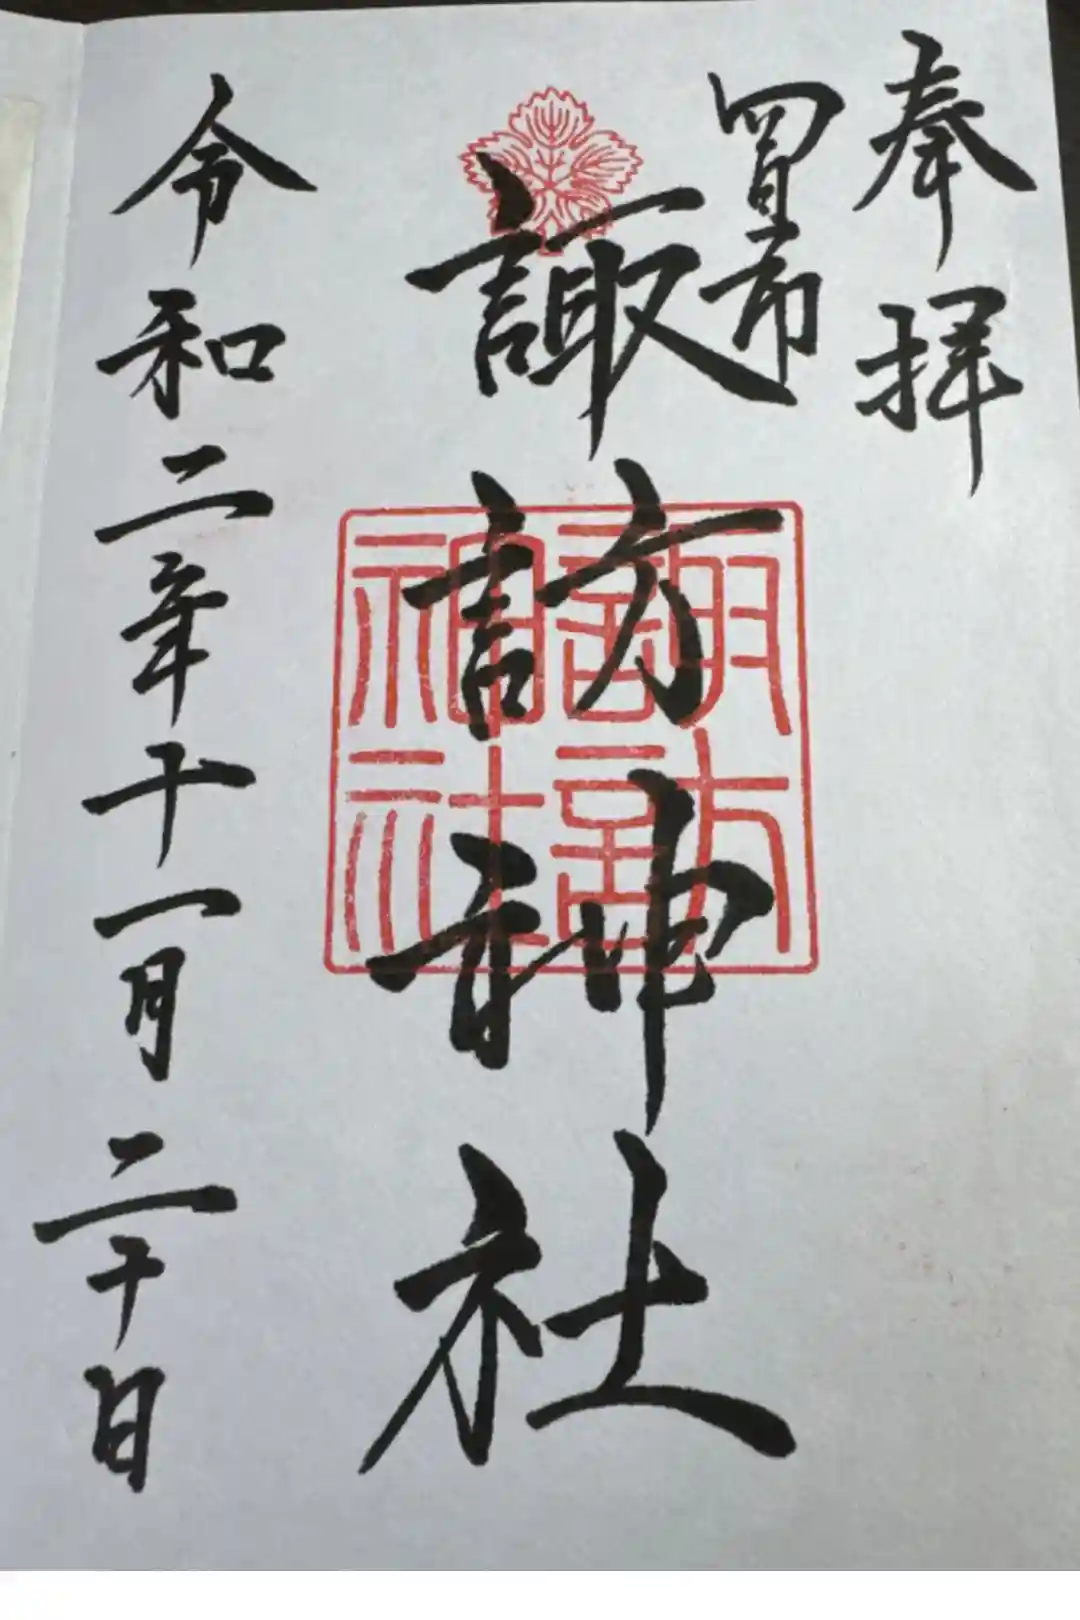 奉拝
四日市
諏訪神社
諏訪
神社
令和二年十一月二十日